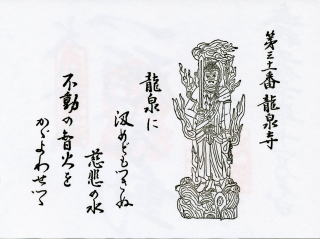 第三十一番龍泉寺
龍泉に
汲めどもつきぬ
慈悲の水
不動の智火を
かゞよわせつゝ